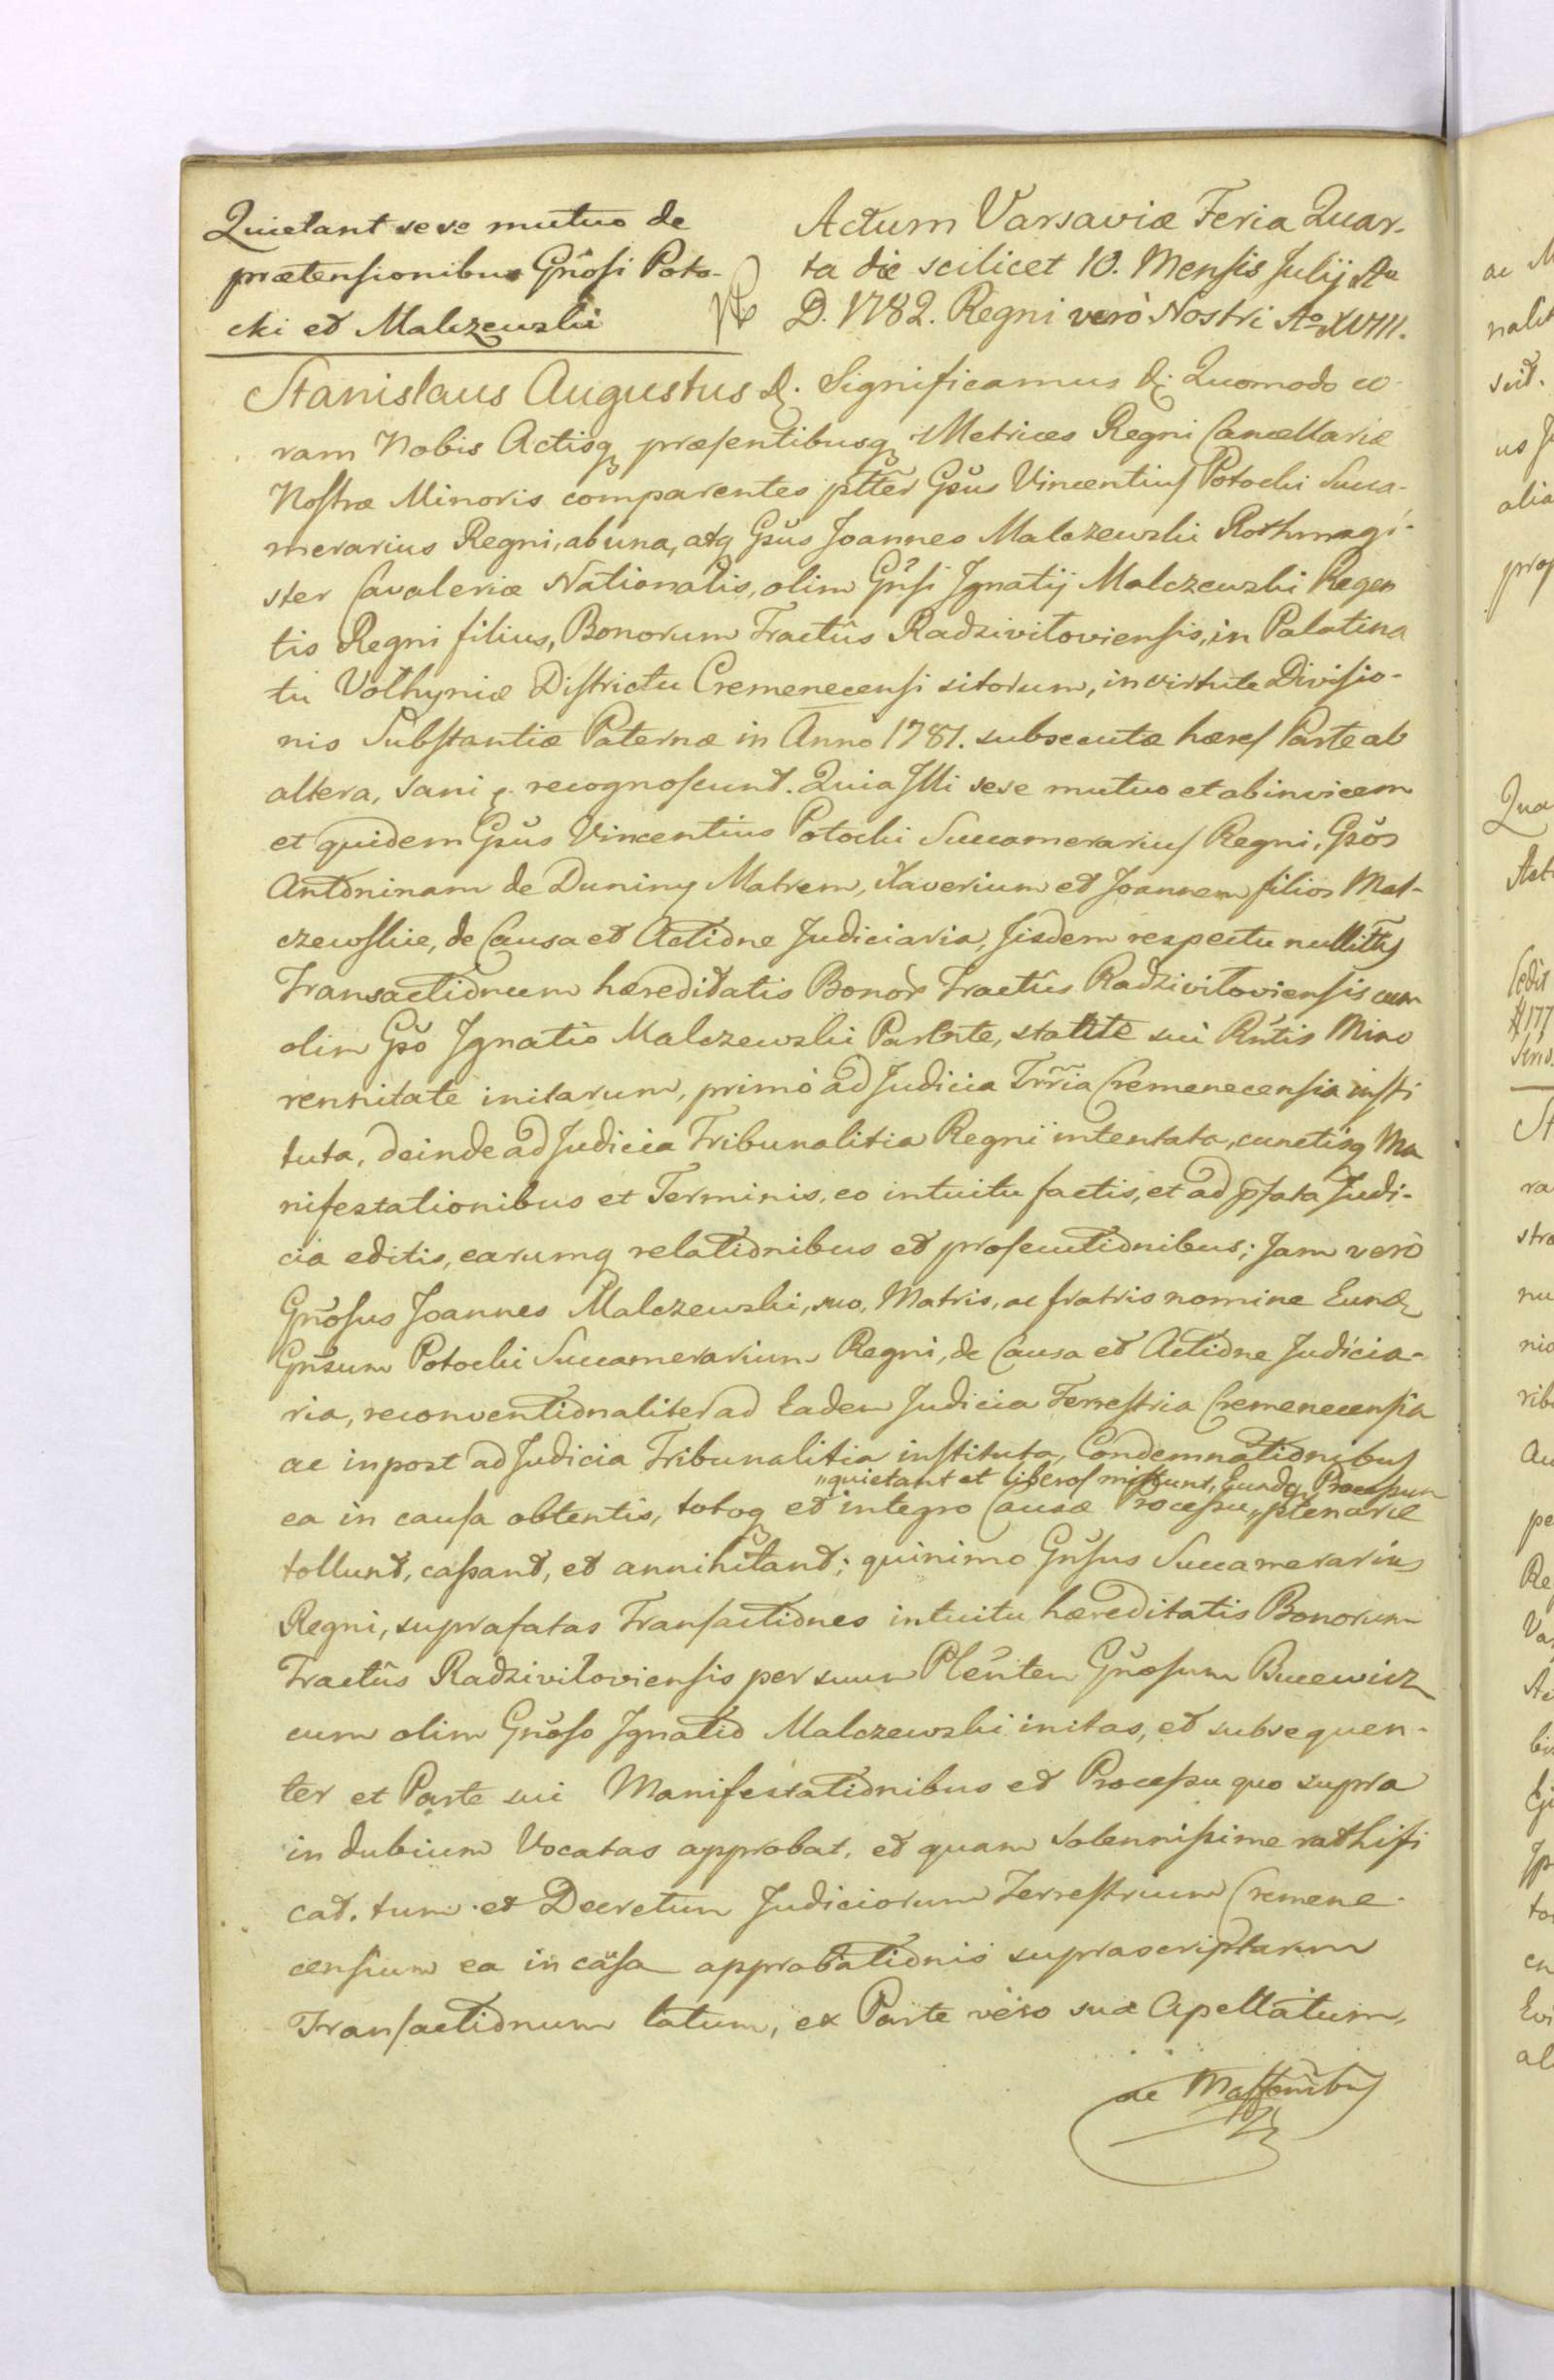 Quietant sese mutuo de
prætensionibus Gñosi Poto-
cki et Malczewski
Actum Varsaviæ Feria Quar-
ta die scilicet 10. Mensis Julij Ao
D. 1782. Regni verò Nostri Ao XVIII.
Stanislaus Augustus &. Significamus &. Quomodo co-
ram Nobis Actisq præsentibusq Metrices Regni Cancellariæ
Nostræ Minoris comparentes Gsus Vincentius Potocki Succa-
merarius Regni, ab una, atq Gsus Joannes Malczewski Rothmagi-
ster Cavaleriæ Nationalis, olim Gñsi Ignatij Malczewski Regen
tis Regni filius, Bonorum Tractûs Radziviloviensis, in Palatina
tu Volhyniæ Districtu Cremenecensi sitorum, in virtute Divisio-
nis Substantiæ Paternæ in Anno 1781. subsecutæ hæres Parte ab
altera, sani &. recognoscunt. Quia Illi sese mutuo et abinvicem
et quidem Gsus Vincentius Potocki Succamerarius Regni, Gsos
Antoninam de Duniny Matrem, Xaverium et Joannem filios Mal-
czewskie, de Causa et Actione Judiciaria, Iisdem respectu nullitts
Transactionum hæreditatis Bonor Tractûs Radziviloviensis cum
olim Gso Ignatio Malczewski Parente, stante sui Rntis Mino
rennitate initarum, primò ad Judicia Trria Cremenecensia insti
tuta, deinde ad Judicia Tribunalitia Regni intentata, cunctisq Ma
nifestationibus et Terminis, eo intuitu factis, et ad pfata Judi-
cia editis, earumq relationibus et prosecutionibus; Jam verò
Gñosus Joannes Malczewski, suo, Matris, ac fratris nomine Eund
Gnsum Potocki Succamerarium Regni, de Causa et Actione Judicia-
ria, reconventionaliter ad Eadem Judicia Terrestria Cremenecensia
ac inpost ad Judicia Tribunalitia instituta, Condemnationibus
"quietant et liberos mittunt, Eundq Processum
ea in causa obtentis, totoq et integro Causæ Processu, plenarie
tollunt, cassant, et annihilant; quinimo Gnsus Succamerarius
Regni, suprafatas Transactiones intuitu hæreditatis Bonorum
Tractûs Radziviloviensis per suum Plenten Gnosum Bucewicz
cum olim Gnoso Ignatio Malczewski initas, et subsequen-
ter et Parte sui Manifestationibus et Processu quo supra
in dubium Vocatas approbat, et quam solennissime rathifi
cat. tum et Decretum Judiciorum Terrestrium Cremene-
censium ea in causa approbationis suprascriptarum
Transactionum latum, ex Parte vero sua Apellatum,
ac